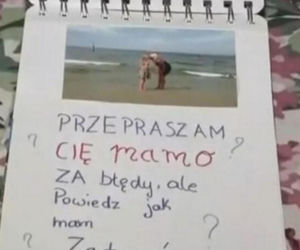 PRZEPRASZAM
CIĘ mamo
ZA błędy, ale
Powiedz jak
mam